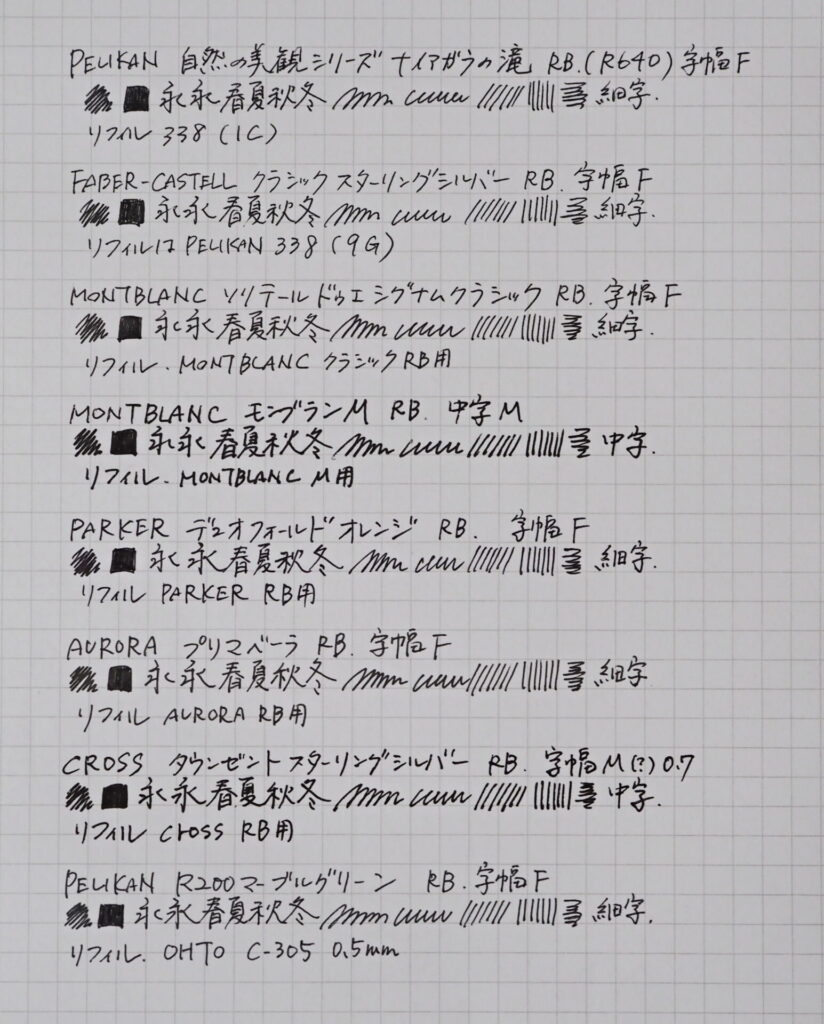 PELIKAN 自然の美観シリーズ ナイアガラの滝 RB.(R640)字幅F
永永春夏秋冬 細字.
リフィル 338 (1C)
FABER-CASTELL クラシックスターリングシルバー RB. 字幅F
永永春夏秋冬 細字.
リフィルは PELIKAN 338 (9G)
MONTBLANC ソリテール ドゥエ シグナムクラシック RB. 字幅F
永永春夏秋冬 細字.
リフィル. MONTBLANC クラシックRB用
MONTBLANC モンブランM RB. 中字M
永永春夏秋冬 中字.
リフィル. MONTBLANC M用
PARKER デュオフォールドオレンジ RB. 字幅F
永永春夏秋冬 細字.
リフィル PARKER RB用
AURORA プリマベーラ RB. 字幅F
永永春夏秋冬 細字
リフィル AURORA RB用
CROSS タウンゼントスターリングシルバー RB. 字幅M(?)0.7
永永春夏秋冬 中字.
リフィル cross RB用
PELIKAN R200マーブルグリーン RB. 字幅F
永永春夏秋冬 細字.
リフィル. OHTO C-305 0.5mm